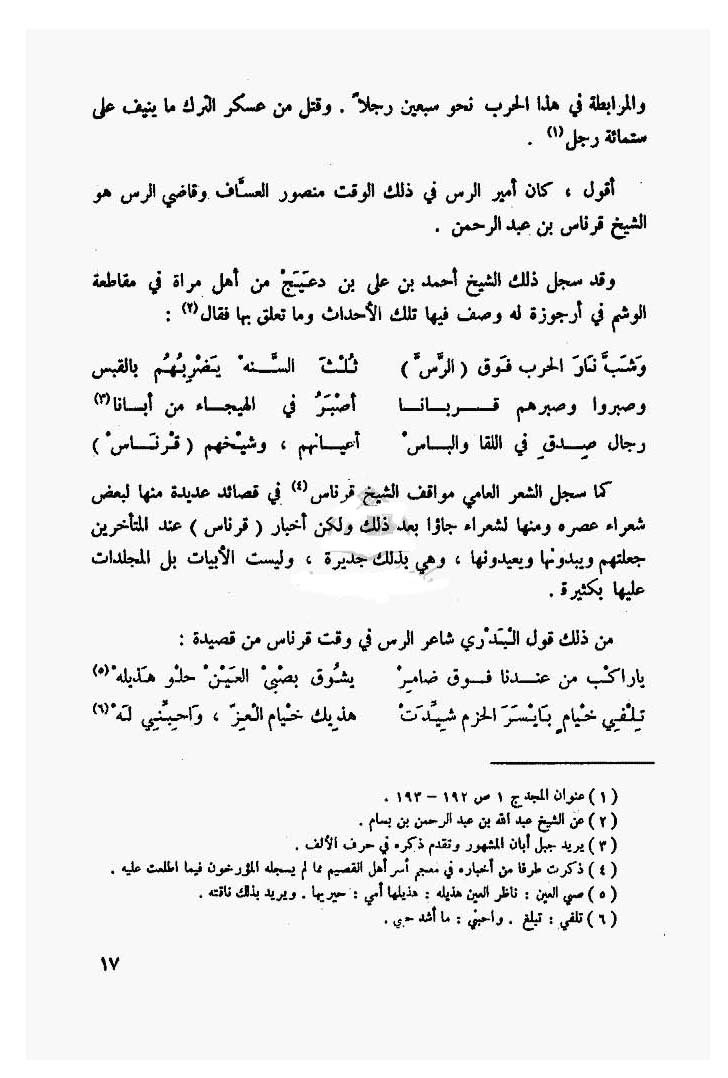 والمرابطة في هذا الحرب نحو سبعين رجلاً . وقتل من عسكر الترك ما ينيف على
ستمائة رجل (١) .
أقول ، كان أمير الرس في ذلك الوقت منصور العسَّاف وقاضي الرس هو
الشيخ قرناس بن عبد الرحمن .
وقد سجل ذلك الشيخ أحمد بن علي بن دعَيَجْ من أهل مراة في مقاطعة
الوشم في أرجوزة له وصف فيها تلك الأحداث وما تعلق بها فقال (٢) :
وَشَبَّ نَارَ الحرب فَوق ( الرَّسَّ ) ثُلْثَ السَّنهْ يَضْرِبُهُم بالقبس
وصبروا وصبرهم قربانا أصْبَرُ في الهيجاء من أبانا (٣)
رجال صِدقٍ في اللقا والباسْ أعيانهم ، وشيْخهم ( قرْنَاسْ )
كما سجل الشعر العامي مواقف الشيخ قرناس (٤) في قصائد عديدة منها لبعض
شعراء عصره ومنها لشعراء جاؤا بعد ذلك ولكن أخبار ( قرناس ) عند المتأخرين
جعلتهم ويبدونها ويعيدونها ، وهي بذلك جديرة ، وليست الأبيات بل المجلدات
عليها بكثيرة .
من ذلك قول الْبَدْري شاعر الرس في وقت قرناس من قصيدة :
ياراكْب من عندنا فوق ضامرْ يشُوق بصْبيْ العَيَنْ حلو هَذيلهْ (٥)
تِلْفي خْيام بَايْسَرَ الحزم شيِّدَتْ هذيك خْيام الْعِزّ ، وَاحِبِّنيِ لَهْ (٦)
( ١ ) عنوان المجد ج ١ ص ١٩٢ – ١٩٣ .
( ٢ ) عن الشيخ عبد الله بن عبد الرحمن بن بسام .
( ٣ ) يريد جبل أبان المشهور وتقدم ذكره في حرف الألف .
( ٤ ) ذكرت طرفا من أخباره في معجم أسر أهل القصيم مما لم يسجله المؤرخون فيما اطلعت عليه .
( ٥ ) صبي العين : ناظر العين هذيله : هذيلها أمي : حيربها . ويريد بذلك ناقته .
( ٦ ) تلفي : تبلغ . واحبني : ما أشد حبي .
١٧